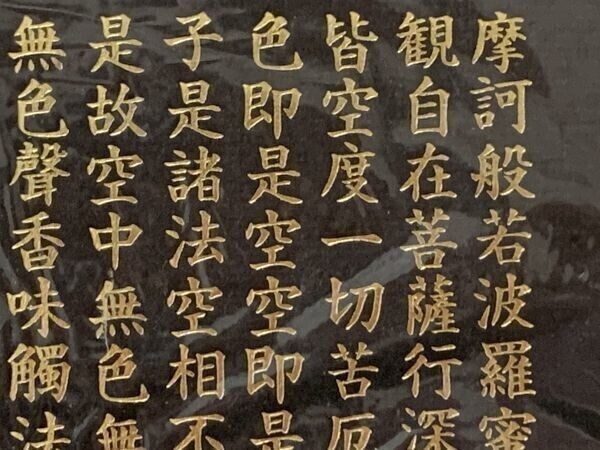 摩訶般若波羅蜜
観自在菩薩行深
皆空度一切苦厄
色即是空空即是
子是諸法空相不
是故空中無色無
無色聲香味觸法